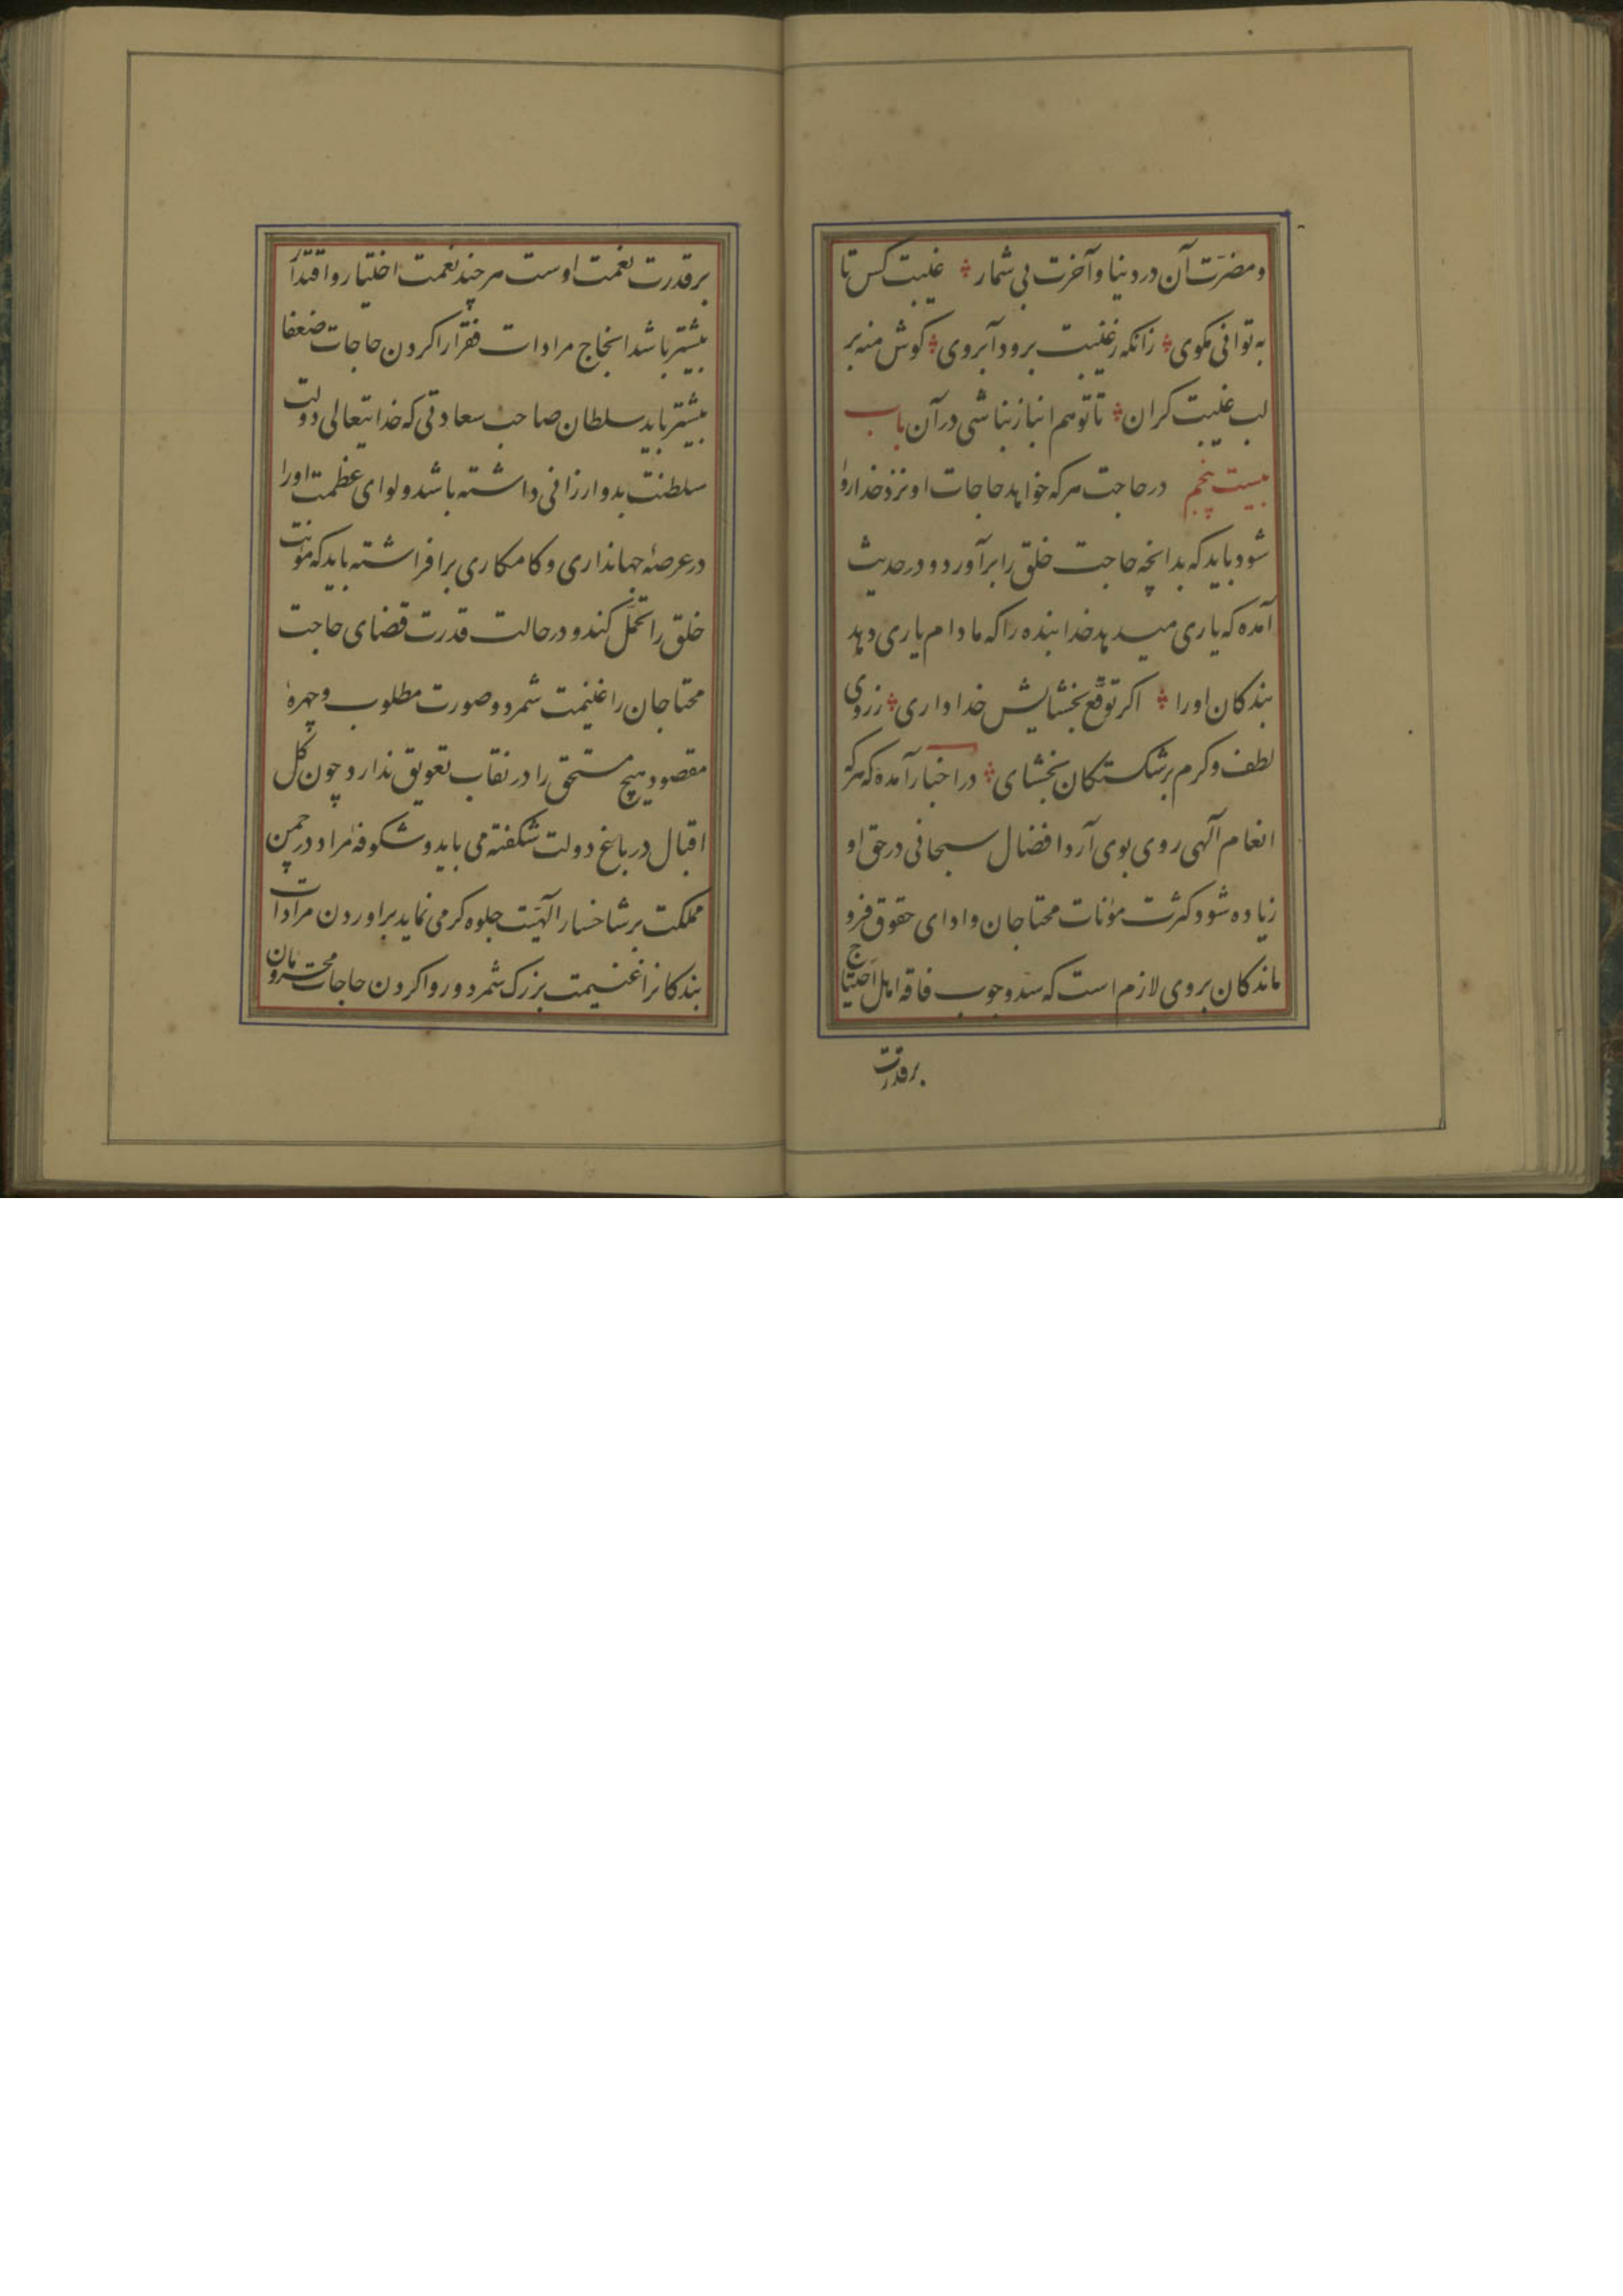 ومضرت آن در دنیا و آخرت بی شمار ؞ غیبت کس تا
به توانی مکوی ؞ زانکه ز غیبت برود آبروی ؞ کوش منه بر
لب غیبت کران ؞ تا تو هم انباز نباشی در آن باب
بیست پنجم در حاجت هر که خواهد حاجات او نزد خدا روا
شود باید که بدانچه حاجت خلق را برآورد و در حدیث
آمده که یاری میدهد خدا بنده را که مادام یاری دهد
بندکان او را ؞ اکر توقع بخشایش خدا داری ؞ ز روی
لطف و کرم بر شکستکان بخشای ؞ در اخبار آمده که هر که
انعام آلهی روی بوی آرد و افضال سبحانی در حق او
زیاده شود کثرت مؤنات محتاجان و ادای حقوق فرو
ماندکان بروی لازم است که سد وجوب فاقه اهل احتیاج
بر قدرت
بر قدرت نعمت اوست هر چند نعمت اختیار و اقتدار
بیشتر باشد انجاح مرادات فقرا را کردن حاجات ضعفا
بیشتر باید سلطان صاحب سعادتی که خدایتعالی دولت
سلطنت بدو ارزانی داشته باشد و لوای عظمت او را
در عرصهٔ جهانداری و کامکاری برافراشته باید که مؤنت
خلق را تحمل کند و در حالت قدرت قضای حاجت
محتاجان را غنیمت شمرد و صورت مطلوب و چهرهٔ
مقصود هیچ مستحق را در نقاب تعویق ندارد چون کل
اقبال در باغ دولت شکفته می باید و شکوفهٔ مراد در چمن
مملکت بر شاخسار آلهیت جلوه کر می نماید براوردن مرادات
بندکانرا غنیمت بزرک شمرد و روا کردن حاجات محرومان